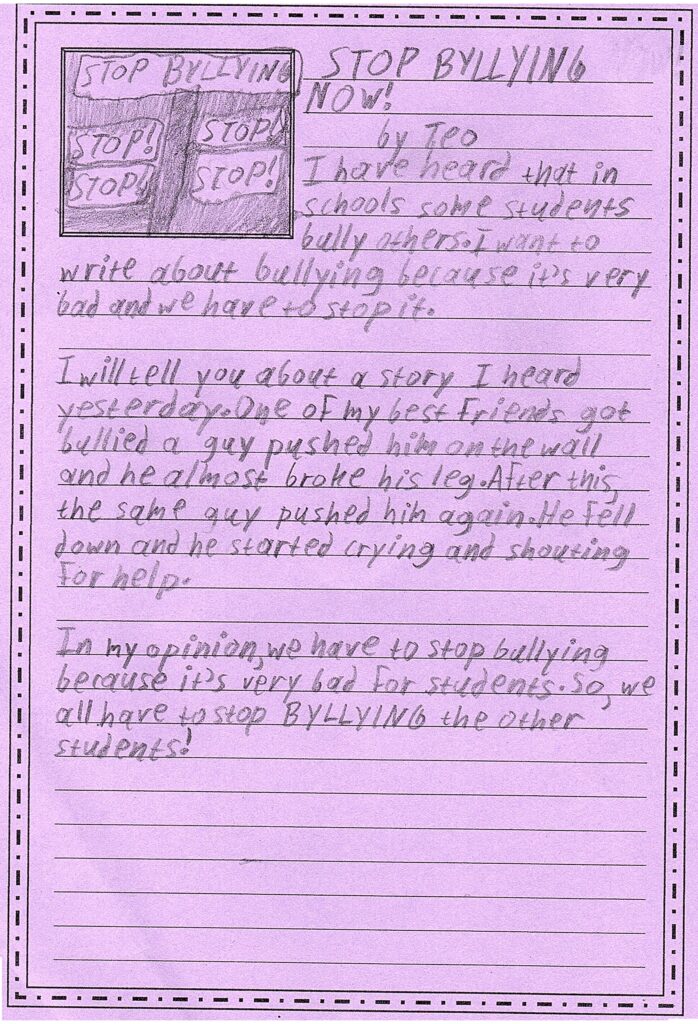 STOP BYLLYING
STOP! STOP!
STOP! STOP!
STOP BYLLYING
NOW!
by Teo
I have heard that in
schools some students
bully others. I want to
write about bullying because it's very
bad and we have to stop it.
I will tell you about a story I heard
yesterday. One of my best friends got
bullied a guy pushed him on the wall
and he almost broke his leg. After this,
the same guy pushed him again. He fell
down and he started crying and shouting
for help.
In my opinion, we have to stop bullying
because it's very bad for students. So, we
all have to stop BYLLYING the other
students!